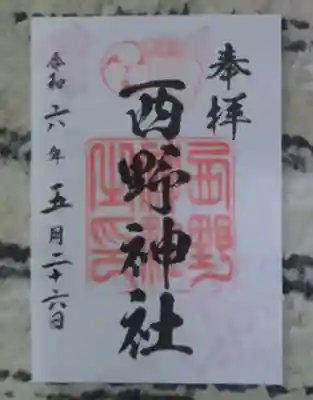 奉拝
西野神社
令和六年五月二十六日